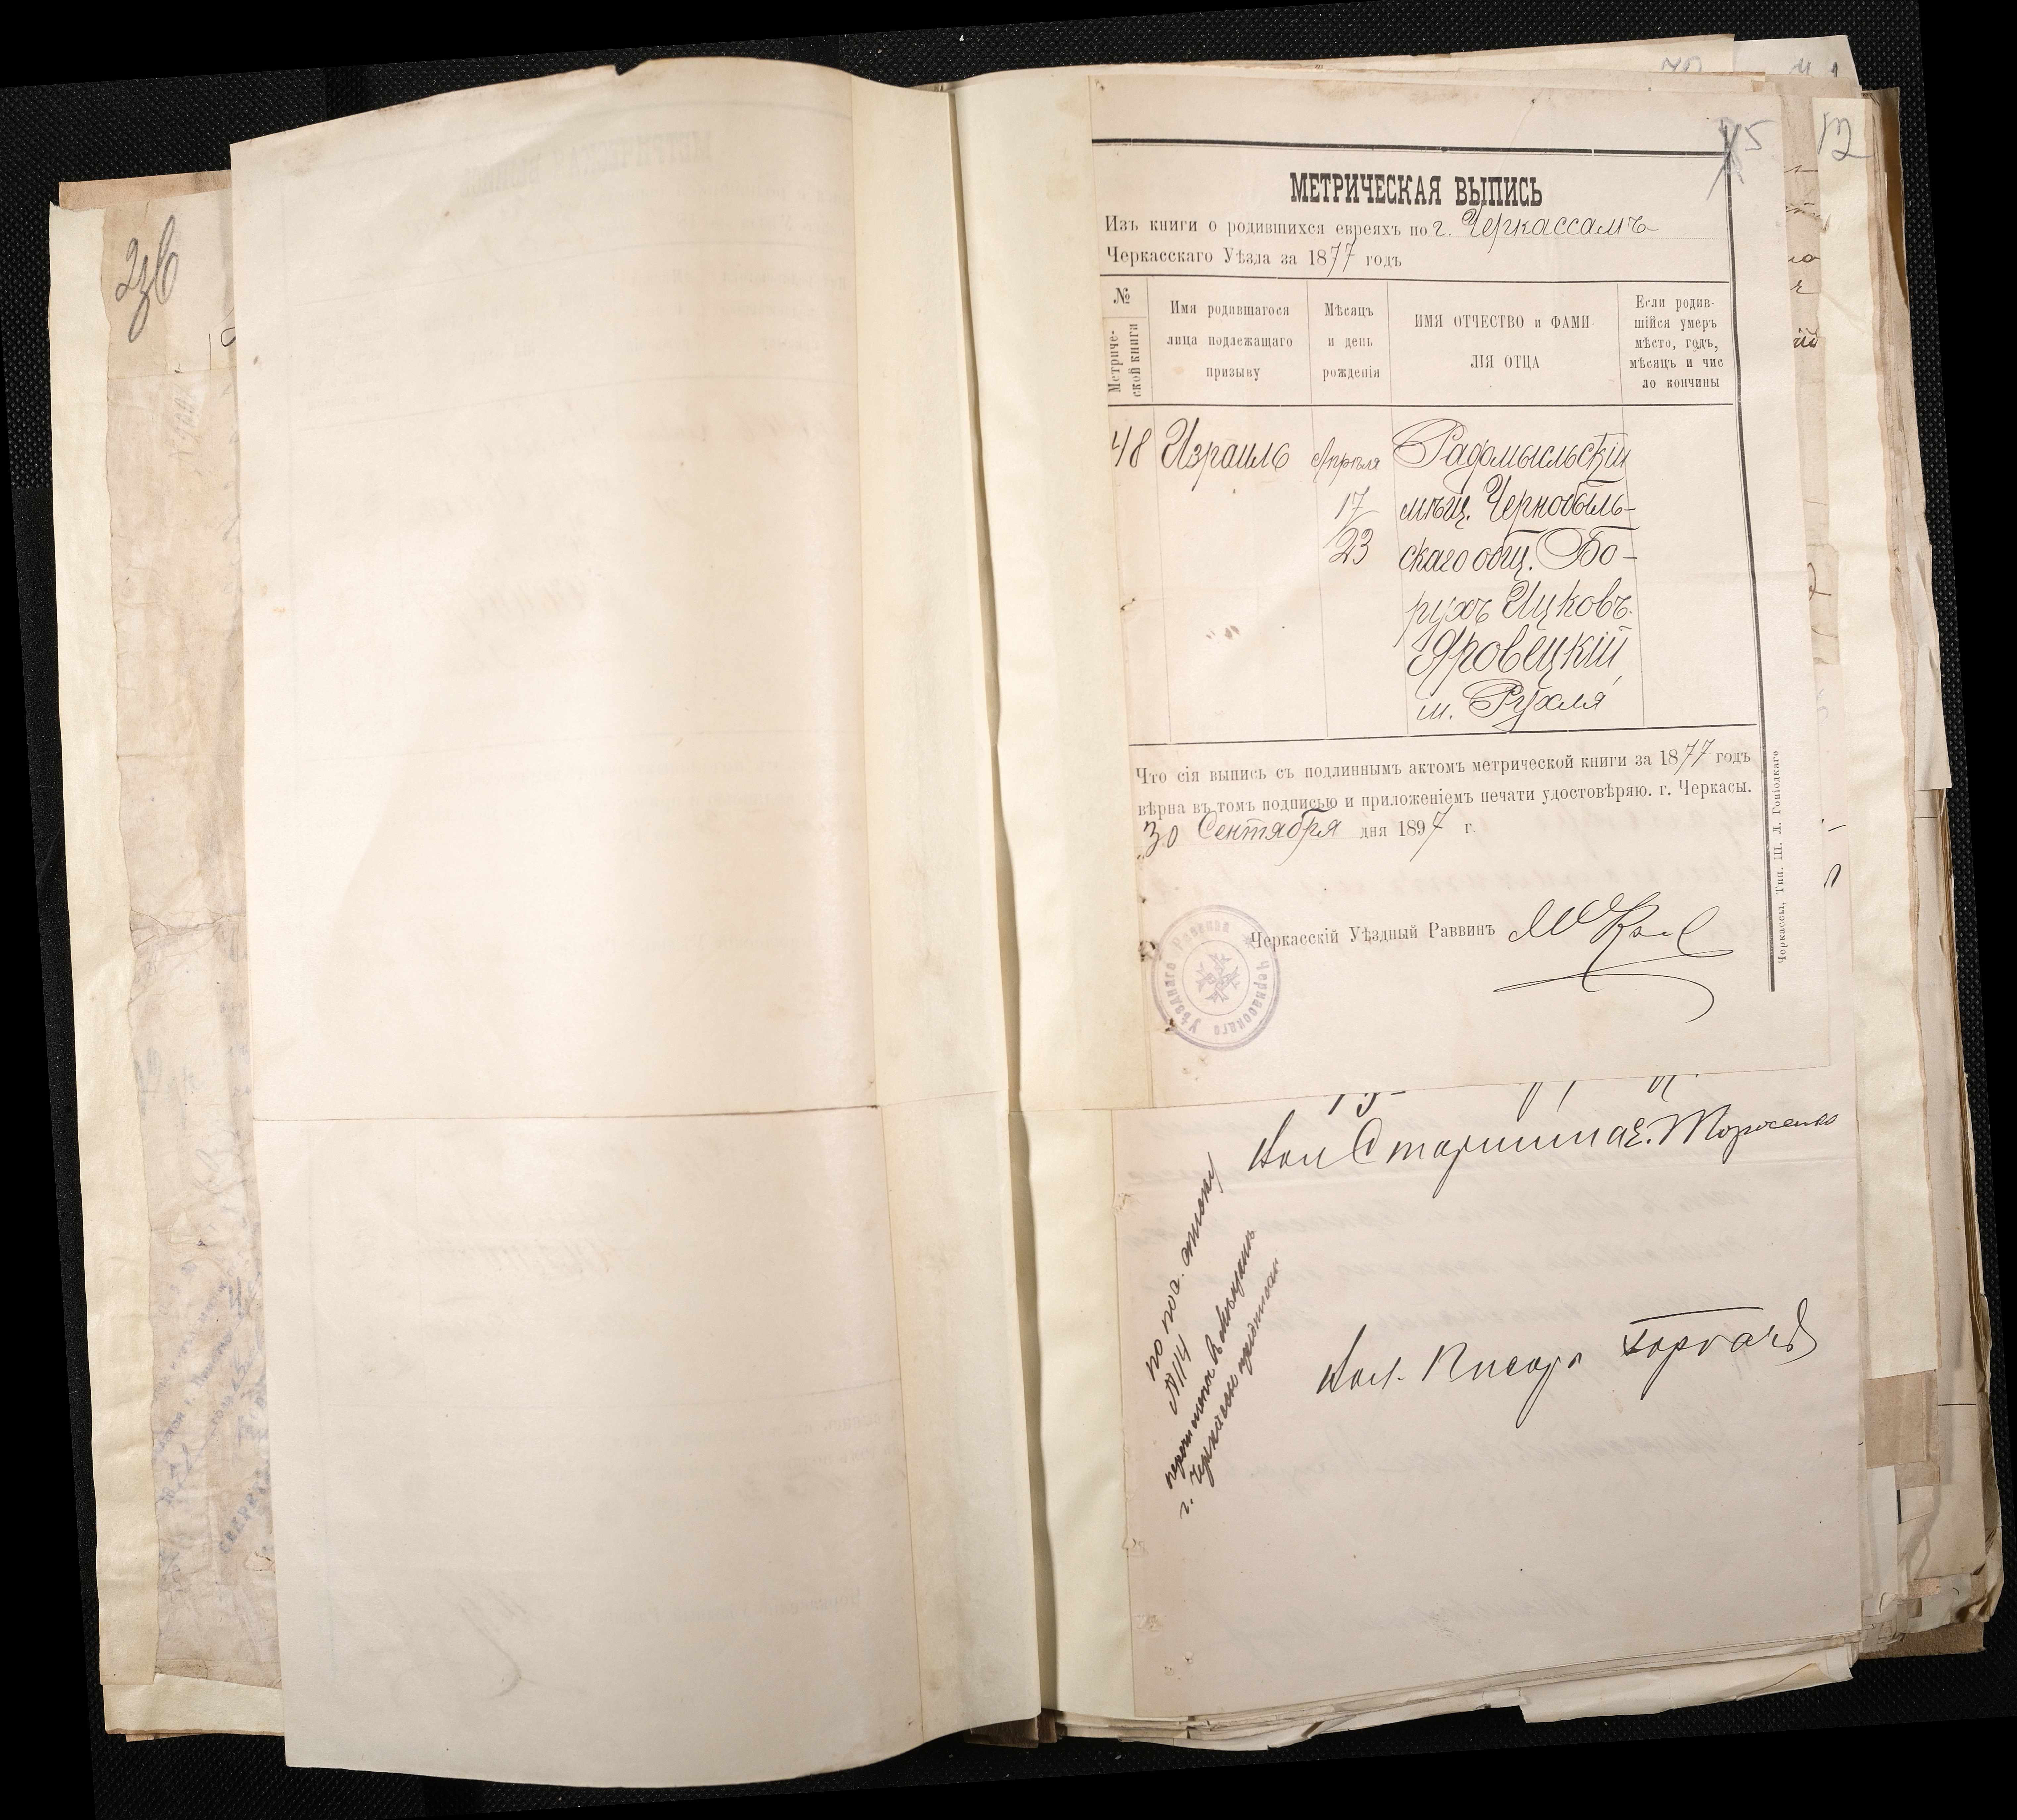 36
5
12
МЕТРИЧЕСКАЯ ВЫПИСЬ
Изъ книги о родившихся евреяхъ по г. Черкассамъ
Черкасскаго Уѣзда за 1877 годъ
№ Метрической книги
Имя родившагося лица подлежащаго призыву
Мѣсяцъ и день рожденія
ИМЯ ОТЧЕСТВО и ФАМИЛІЯ ОТЦА
Если родившійся умеръ мѣсто, годъ, мѣсяцъ и число кончины
48 Израиль Апрѣля Радомысльскій
17 мѣщ. Чернобыль-
23 скаго общ. Бо-
рухъ Ицковъ
Яровецкій
м. Рухля
Что сія выпись съ подлиннымъ актомъ метрической книги за 1877 годъ
вѣрна въ томъ подписью и приложеніемъ печати удостовѣряю. г. Черкасы.
30 Сентября дня 1897 г.
Черкасскій Уѣздный Раввинъ
Черкасскаго Уѣзднаго Раввина
Черкассы, Тип. Ш. Л. Гоніодкаго
Вол Старшина
Вол. Писарь Горбачъ
по пос. списку
№114
г. Черкассы